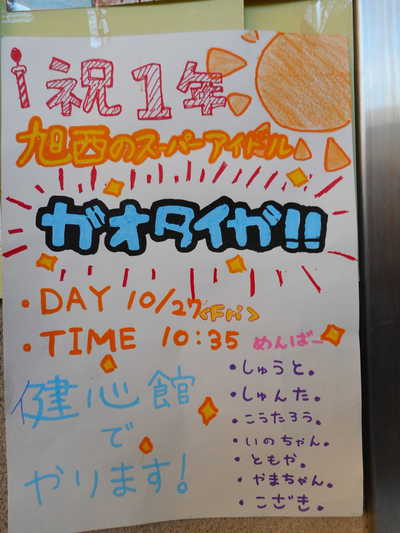 祝1年
旭西のスーパーアイドル
ガオタイガ!!
・DAY 10/27<Fri>
・TIME 10:35
めんばー
・しゅうと。
・しゅんた。
・こうたろう。
・いのちゃん。
・ともか。
・やまちゃん。
・こざき。
健心館
で
やります!